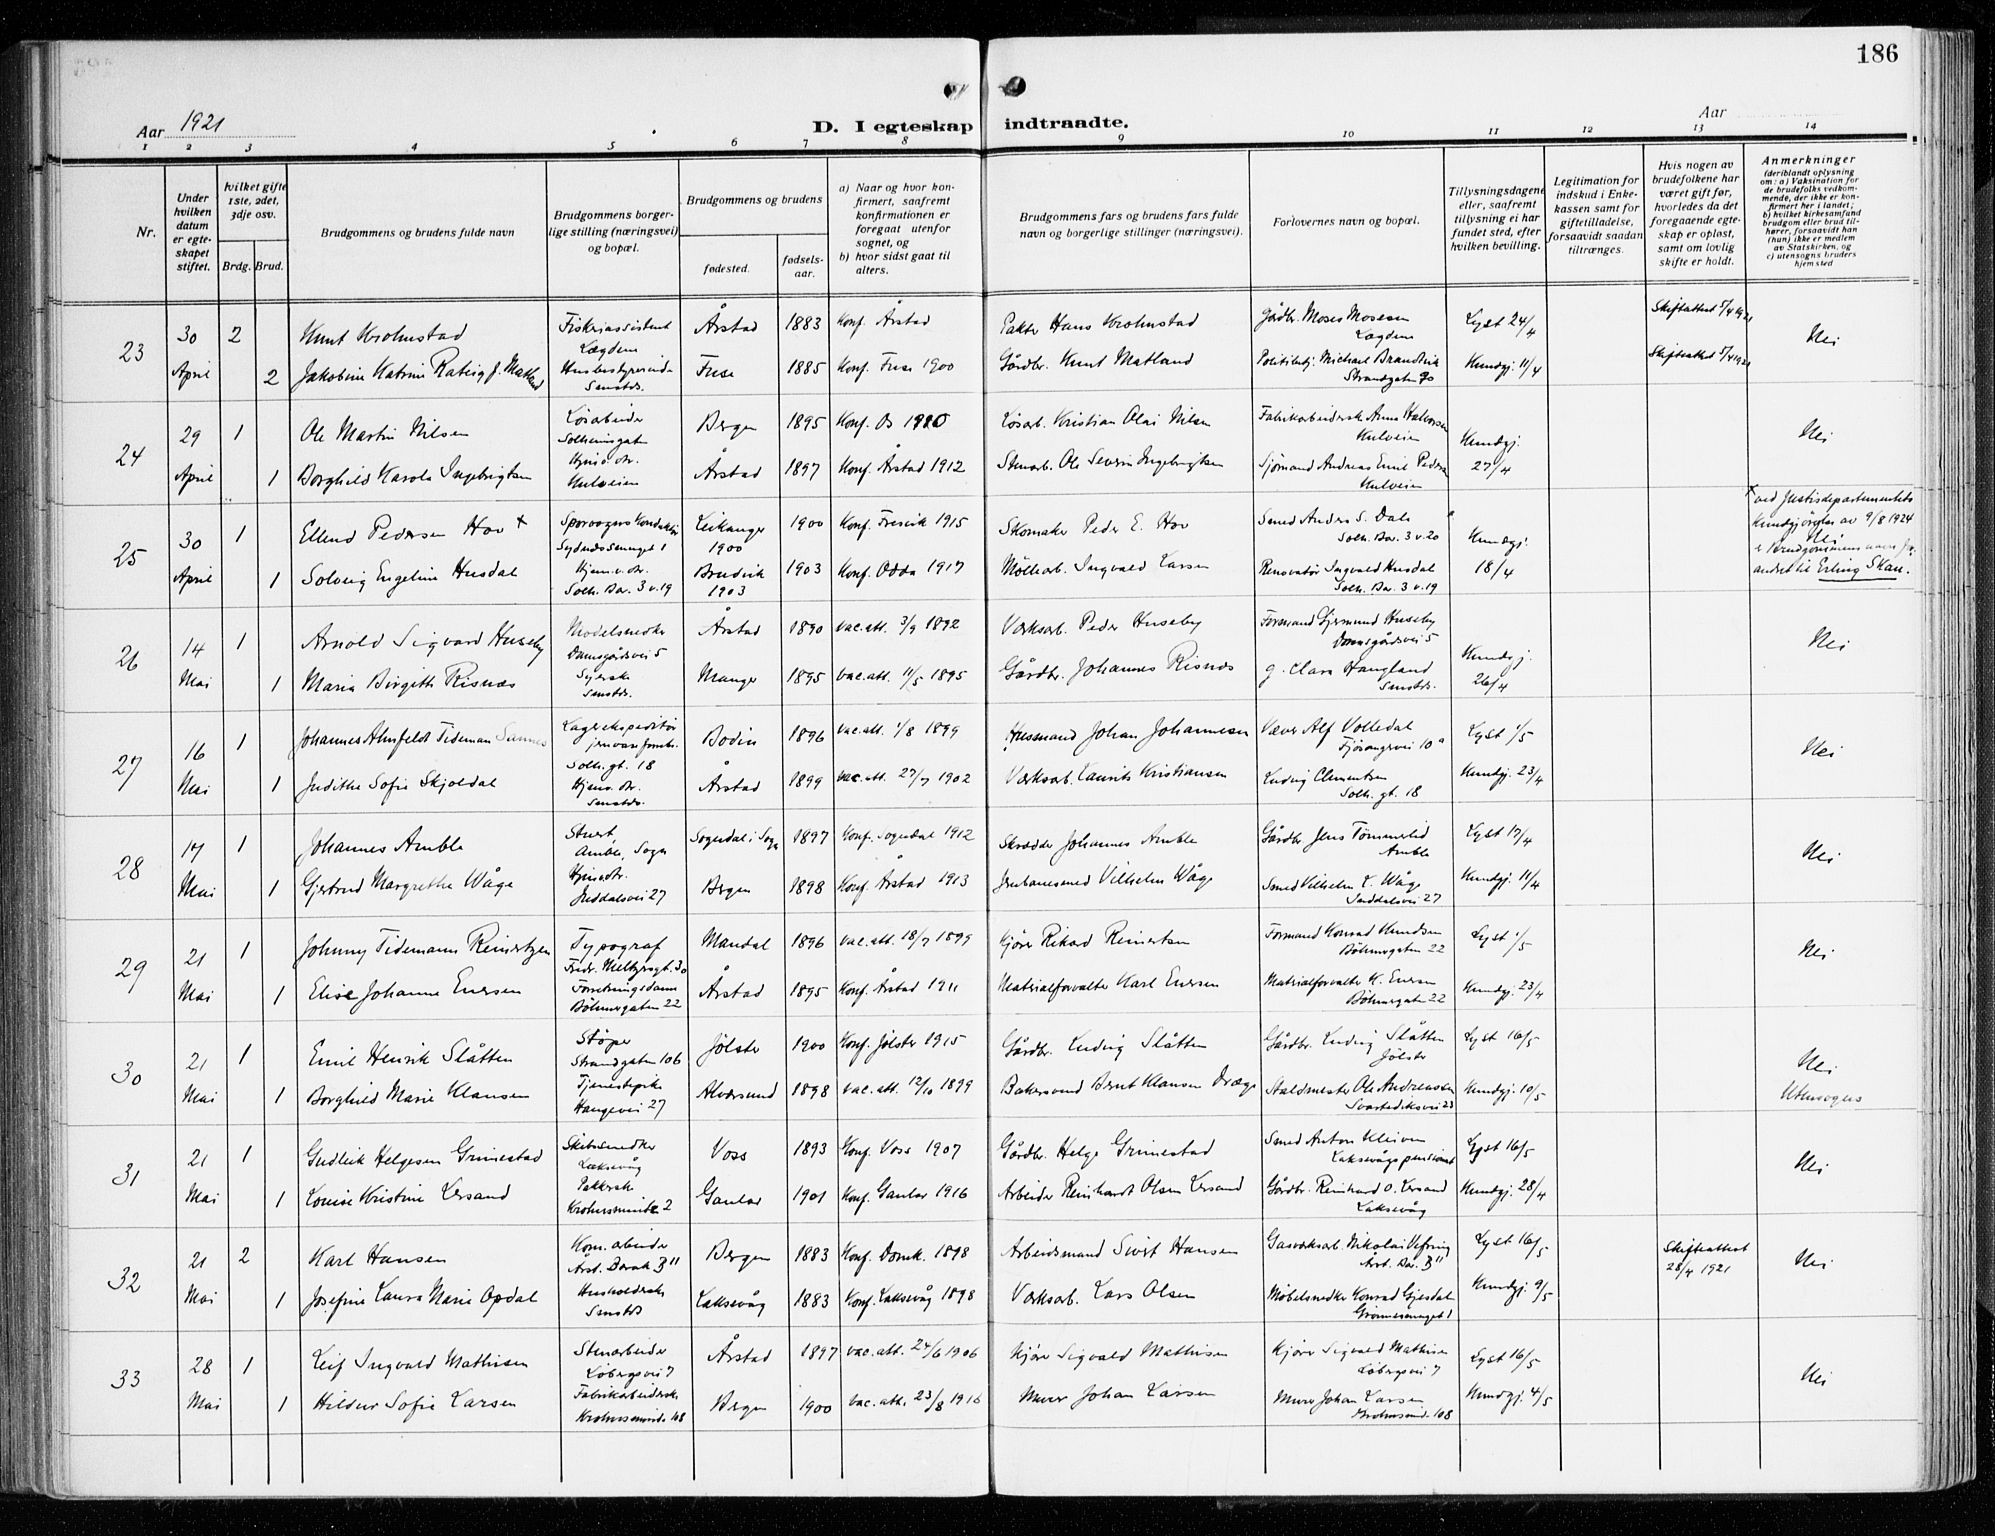 186
Aar 1921
D. I egteskap indtraadte.
Aar
1 2 3 4 5 6 7 8 9 10 11 12 13 14
Nr.
Under hvilken datum er egteskapet stiftet.
hvilket gifte 1ste, 2det, 3dje osv.
Brdg. Brud.
Brudgommens og brudens fulde navn
Brudgommens borgerlige stilling (næringsvei) og bopæl.
Brudgommens og brudens
fødested.
fødselsaar.
a) Naar og hvor konfirmert, saafremt konfirmationen er foregaat utenfor sognet, og
b) hvor sidst gaat til alters.
Brudgommens fars og brudens fars fulde navn og borgerlige stillinger (næringsvei).
Forlovernes navn og bopæl.
Tillysningsdagene eller, saafremt tillysning ei har fundet sted, efter hvilken bevilling.
Legitimation for indskud i Enkekassen samt for giftetilladelse, forsaavidt saadan tiltrænges.
Hvis nogen av brudefolkene har været gift før, hvorledes da det foregaaende egteskap er opløst, samt om lovlig skifte er holdt.
Anmerkninger (deriblandt oplysning om: a) Vaksination for de brudefolks vedkommende, der ikke er konfirmert her i landet; b) hvilket kirkesamfund brudgom eller brud tilhører, forsaavidt han (hun) ikke er medlem av Statskirken, og c) utensogns bruders hjemsted
23 30 April 2 Knut Krohnstad Fiskeriassistent Årstad 1883 Konf. Årstad Hans Krohnstad Gårdbr. Moses Mosesen Lyst 24/4 Skifteattest 5/4 1921 Nei
2 Jakobine Katrine Rateig f. Matland Husbestyrerinde Sammestds. Fuse 1885 Konf. Fuse 1900 Gårdbr. Knut Matland Politibetj. Michael Brandvik Strandgaten 90 Kundgj. 11/4 Skifteattest 5/4 1921
24 29 April 1 Ole Martin Nilsen Løsarbeider Solheimsgaten Bergen 1895 Konf. Os 1910 Løsarb. Kristian Olai Nilsen Fabrikarbeiderske Anna Halvorsen Kundgj. 27/4 Nei
1 Borghild Karola Ingebrigtsen Hjemv. dtr. Årstad 1897 Konf. Årstad 1912 Stenarb. Ole Severin Ingebrigtsen Sjømand Andreas Emil Pedersen
25 30 April 1 Ellend Pedersen Hov + Sporvogns Konduktør Leikanger 1900 1900 Konf. Fresvik 1915 Skomaker Peder E. Hov Smed Anders S. Dale Solh. Bar. 3 v. 20 Kundgj. 18/4 Nei
+ ved Justisdepartementets kundgjørelse av 9/8 1924 er Brudgommens navn forandret til Erling Skau.
1 Solveig Engeline Husdal Hjemv. dtr. Solh. Bar. 3 v. 19 Bruvik 1903 1903 Konf. Odda 1917 Møllearb. Ingvald Larsen Renovatør Ingvald Husdal Solh. Bar. 3 v. 19
26 14 Mai 1 Arnold Sigvard Huseby Modelsnedker Damsgårdsvei 5 Årstad 1890 vac. att. 3/9 1892 Værksarb. Peder Huseby Formand Gjermund Huseby Damsgårdsvei 5 Kundgj. 26/4 Nei
1 Maria Birgitte Risnæs Syerske Sammestds. Manger 1895 vac. att. 11/5 1895 Gårdbr. Johannes Risnæs g. Clara Haugland Sammestds.
27 16 Mai 1 Johannes Ahnfeldt Tideman Sannes Lagerekspeditør Solh. gt. 18 Bodin 1896 vac. att. 1/8 1899 Husmand Johan Johannesen Væver Alf Volledal Fjøsangervei 10 a Lyst 1/5 Nei
1 Judithe Sofie Skjoldal Hjemv. dtr. Sammestds. Årstad 1899 vac. att. 27/7 1902 Værksarb. Laurits Kristiansen Ludvig Clementsen Solh. gt. 18 Kundgj. 23/4
28 17 Mai 1 Johannes Amble Stuert Amble, Sogn Sogndal i Sogn 1897 Konf. Sogndal 1912 Skrædder Johannes Amble Gårdbr Jens Tømmerlid Amble Lyst 17/4 Nei
1 Gjertrud Margrethe Wåge Hjemv. dtr. Inddalsvei 27 Bergen 1898 Konf. Årstad 1913 Jernbanesmed Vilhelm Wåge Smed Vilhelm L. Wåge Inddalsvei 27 Kundgj. 11/4
29 21 Mai 1 Johnny Tidemann Reinertzen Typograf Fredr. Meltzersgt. 30 Mandal 1896 vac. att. 18/7 1899 Kjører Rikard Reinertsen Formand Konrad Knudsen Bøhmergaten 22 Lyst 1/5 Nei
1 Elise Johanne Enersen Forretningsdame Bøhmergaten 22 Årstad 1895 Konf. Årstad 1911 Materialforvalter Karl Enersen Materialforvalter K. Enersen Bøhmergaten 22 Kundgj. 23/4
30 21 Mai 1 Emil Henrik Slåtten Støper Strandgaten 106 Jølster 1900 Konf. Jølster 1915 Gårdbr. Ludvig Slåtten Gårdbr. Ludvig Slåtten Jølster Lyst 16/5 Nei
1 Borghild Marie Klausen Tjenestepike Haugevei 27 Alversund 1898 vac. att. 12/10 1899 Bakersvend Bernt Klausen Dræge Staldmester Ole Andreassen Svartediksvei 23 Kundgj. 10/5 Utensogns
31 21 Mai 1 Gudleik Helgesen Grimestad Skibssnedker Laksevåg Voss 1893 Konf. Voss 1907 Gårdbr. Helge Grimestad Smed Anton Kleiven Laksevågs pensionat Lyst 16/5 Nei
1 Louise Kristine Lersand Pakkerske Krohnsminde 2 Gaular 1901 Konf. Gaular 1916 Arbeider Reinhardt Olsen Lersand Gårdbr. Reinhard O. Lersand Laksevåg Kundgj. 28/4
32 21 Mai 2 Karl Hansen Kom. arbeider Årst. Barak 3" Bergen 1883 Konf. Domk. 1898 Arbeidsmand Sivert Hansen Gasværksarb. Nikolai Vefring Årst. Bar. 3" Lyst 16/5 Skifteattest 28/4 1921 Nei
1 Josefine Laura Marie Opdal Husholderske Sammestds Laksevåg 1883 Konf. Laksevåg 1898 Værksarb. Lars Olsen Møbelsnedker Konrad Gjesdal Grønnesmuget 1 Kundgj. 9/5
33 28 Mai 1 Leif Ingvald Mathisen Stenarbeider Løbergsvei 7 Årstad 1897 vac. att. 24/6 1906 Kjører Sigvald Mathisen Kjører Sigvald Mathisen Løbergsvei 7 Lyst 16/5 Nei
1 Hildur Sofie Larsen Fabrikarbeiderske Krohnsminde 108 Bergen 1900 vac. att. 23/8 1916 Murer Johan Larsen Murer Johan Larsen Krohnsminde 108 Kundgj. 4/5